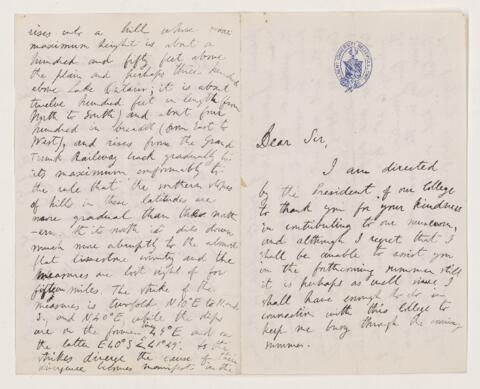 Dear Sir,
I am directed
by the President of our College
to thank you for your kindness
in contributing to our museum,
and although I regret that I
shall be unable to assist you
in the forthcoming summer still
it is perhaps as well since I
shall have enough to do in
connection with this College to
keep me busy through the coming
summer.
rises into a hill whose
maximum height is about a
hundred and fifty feet above
the plain and perhaps three hundred
above Lake Ontario; it is about
twelve hundred feet in length (from
North to South) and about four
hundred in breadth (from East to
West), and rises from the Grand
Trunk Railway track gradually to
its maximum conformably to
the rule that the southern slopes
of hills in these latitudes are
more gradual than the north
-ern. At its north it dies down
much more abruptly to the almost
flat limestone country and the
measures are lost sight of for
fifteen miles. The strike of the
measures is twofold
and N40°E, while the dips
are on the former and on
the latter As the
strikes diverge the cause of their
divergence becomes manifest in the